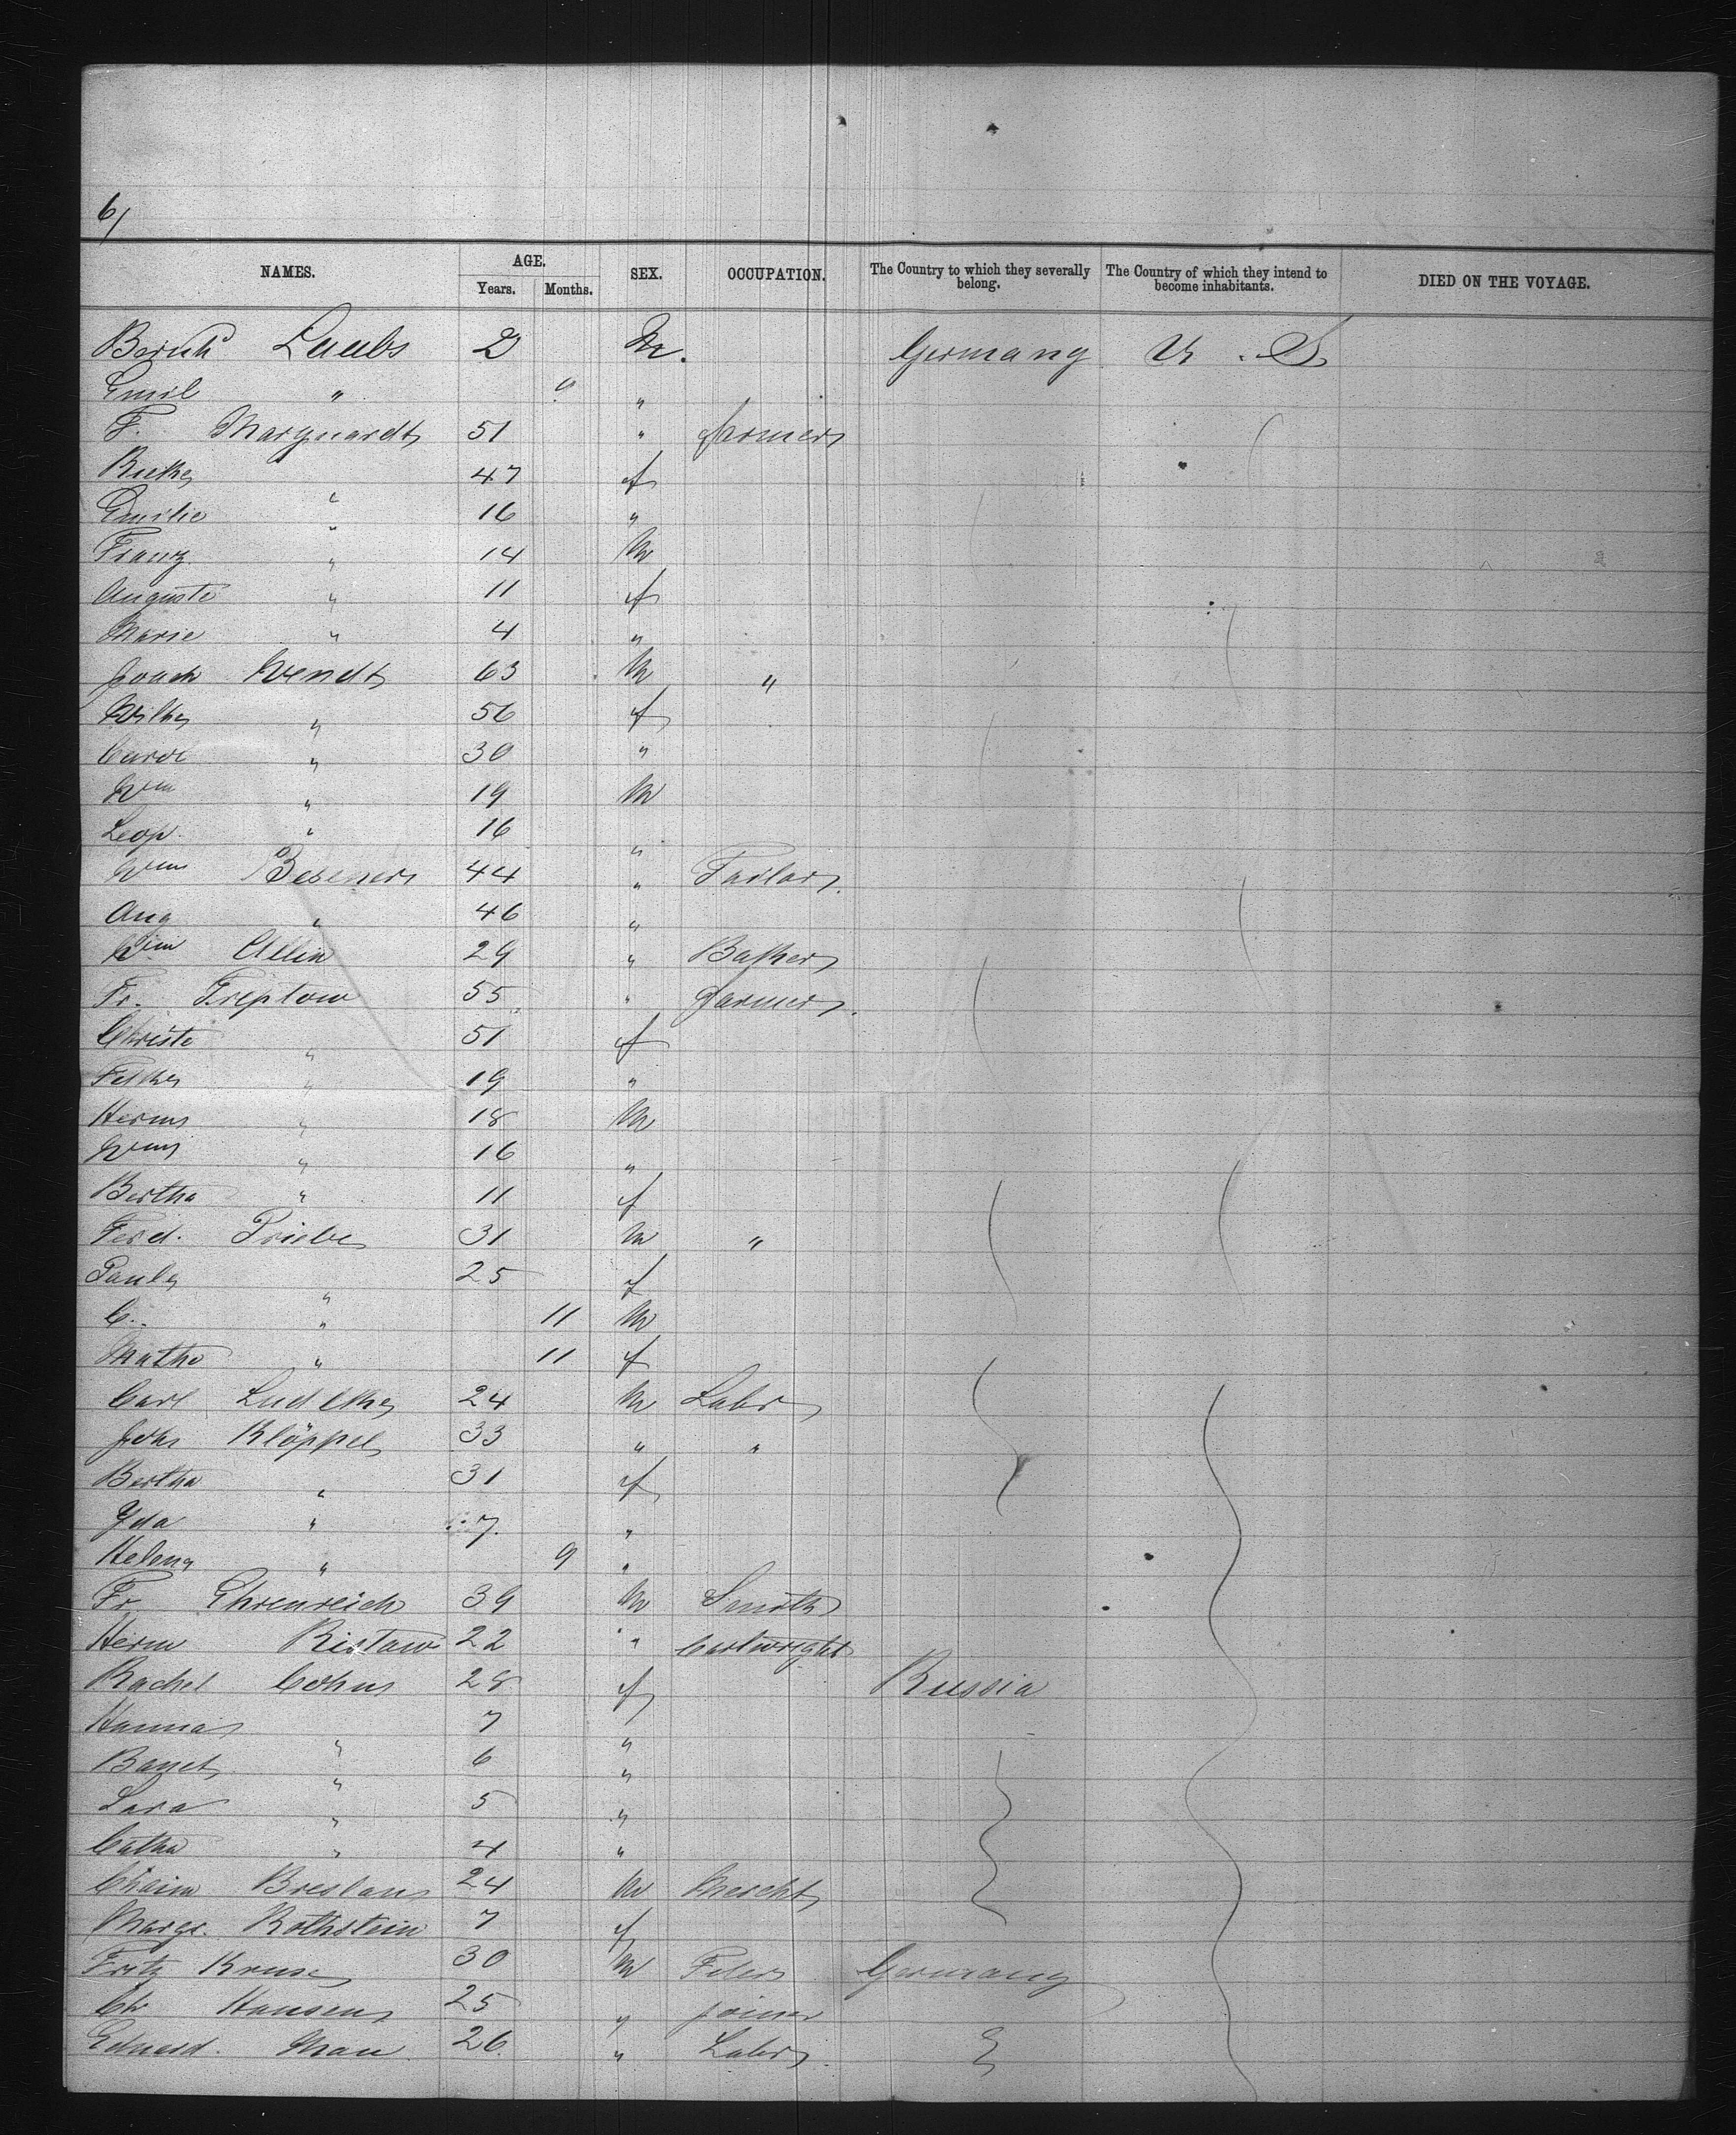 6/
NAMES. AGE. SEX. OCCUPATION. The Country to which they severally belong. The Country of which they intend to become inhabitants. DIED ON THE VOYAGE.
Years. Months.
Bernh Luebs 2 M. Germany U. S.
Emil " 9 "
F. Marquardt 51 " farmer
Rieke " 47 f
Emilie " 16 "
Franz " 14 M
Auguste " 11 f
Marie " 4 "
Joach Wendt 63 M "
Wilhe " 56 f
Carol " 30 "
Wm " 19 M
Leop. " 16 "
Wm 44 " Tailor
Aug " 46 "
Wm 29 " Baker
Fr. Treptow 55 " farmer
Christe " 51 f
" 19 "
Herm " 18 M
Wm " 16 "
Bertha " 11 f
Ferd. Priebe 31 M "
Paule " 25 f
C. " 11 M
Mathe " 11 f
Carl Ludtke 24 M Labr
Joh Klöppel 33 " "
Bertha " 31 f
Ida " 7 "
Helena " 9 "
Fr. Ehrenreich 39 M Smith
Herm Ristau 22 " Cartwright
Rachel Cohn 28 f Russia
Hanna " 7 "
" 6 "
Sara " 5 "
Catha " 4 "
Chaim Breslau 24 M Mercht
Margr. Rothstein 7 f
Fritz Kruse 30 M Germany
Chr Hansen 25 " joiner
Eduard Mau 26 " Labr